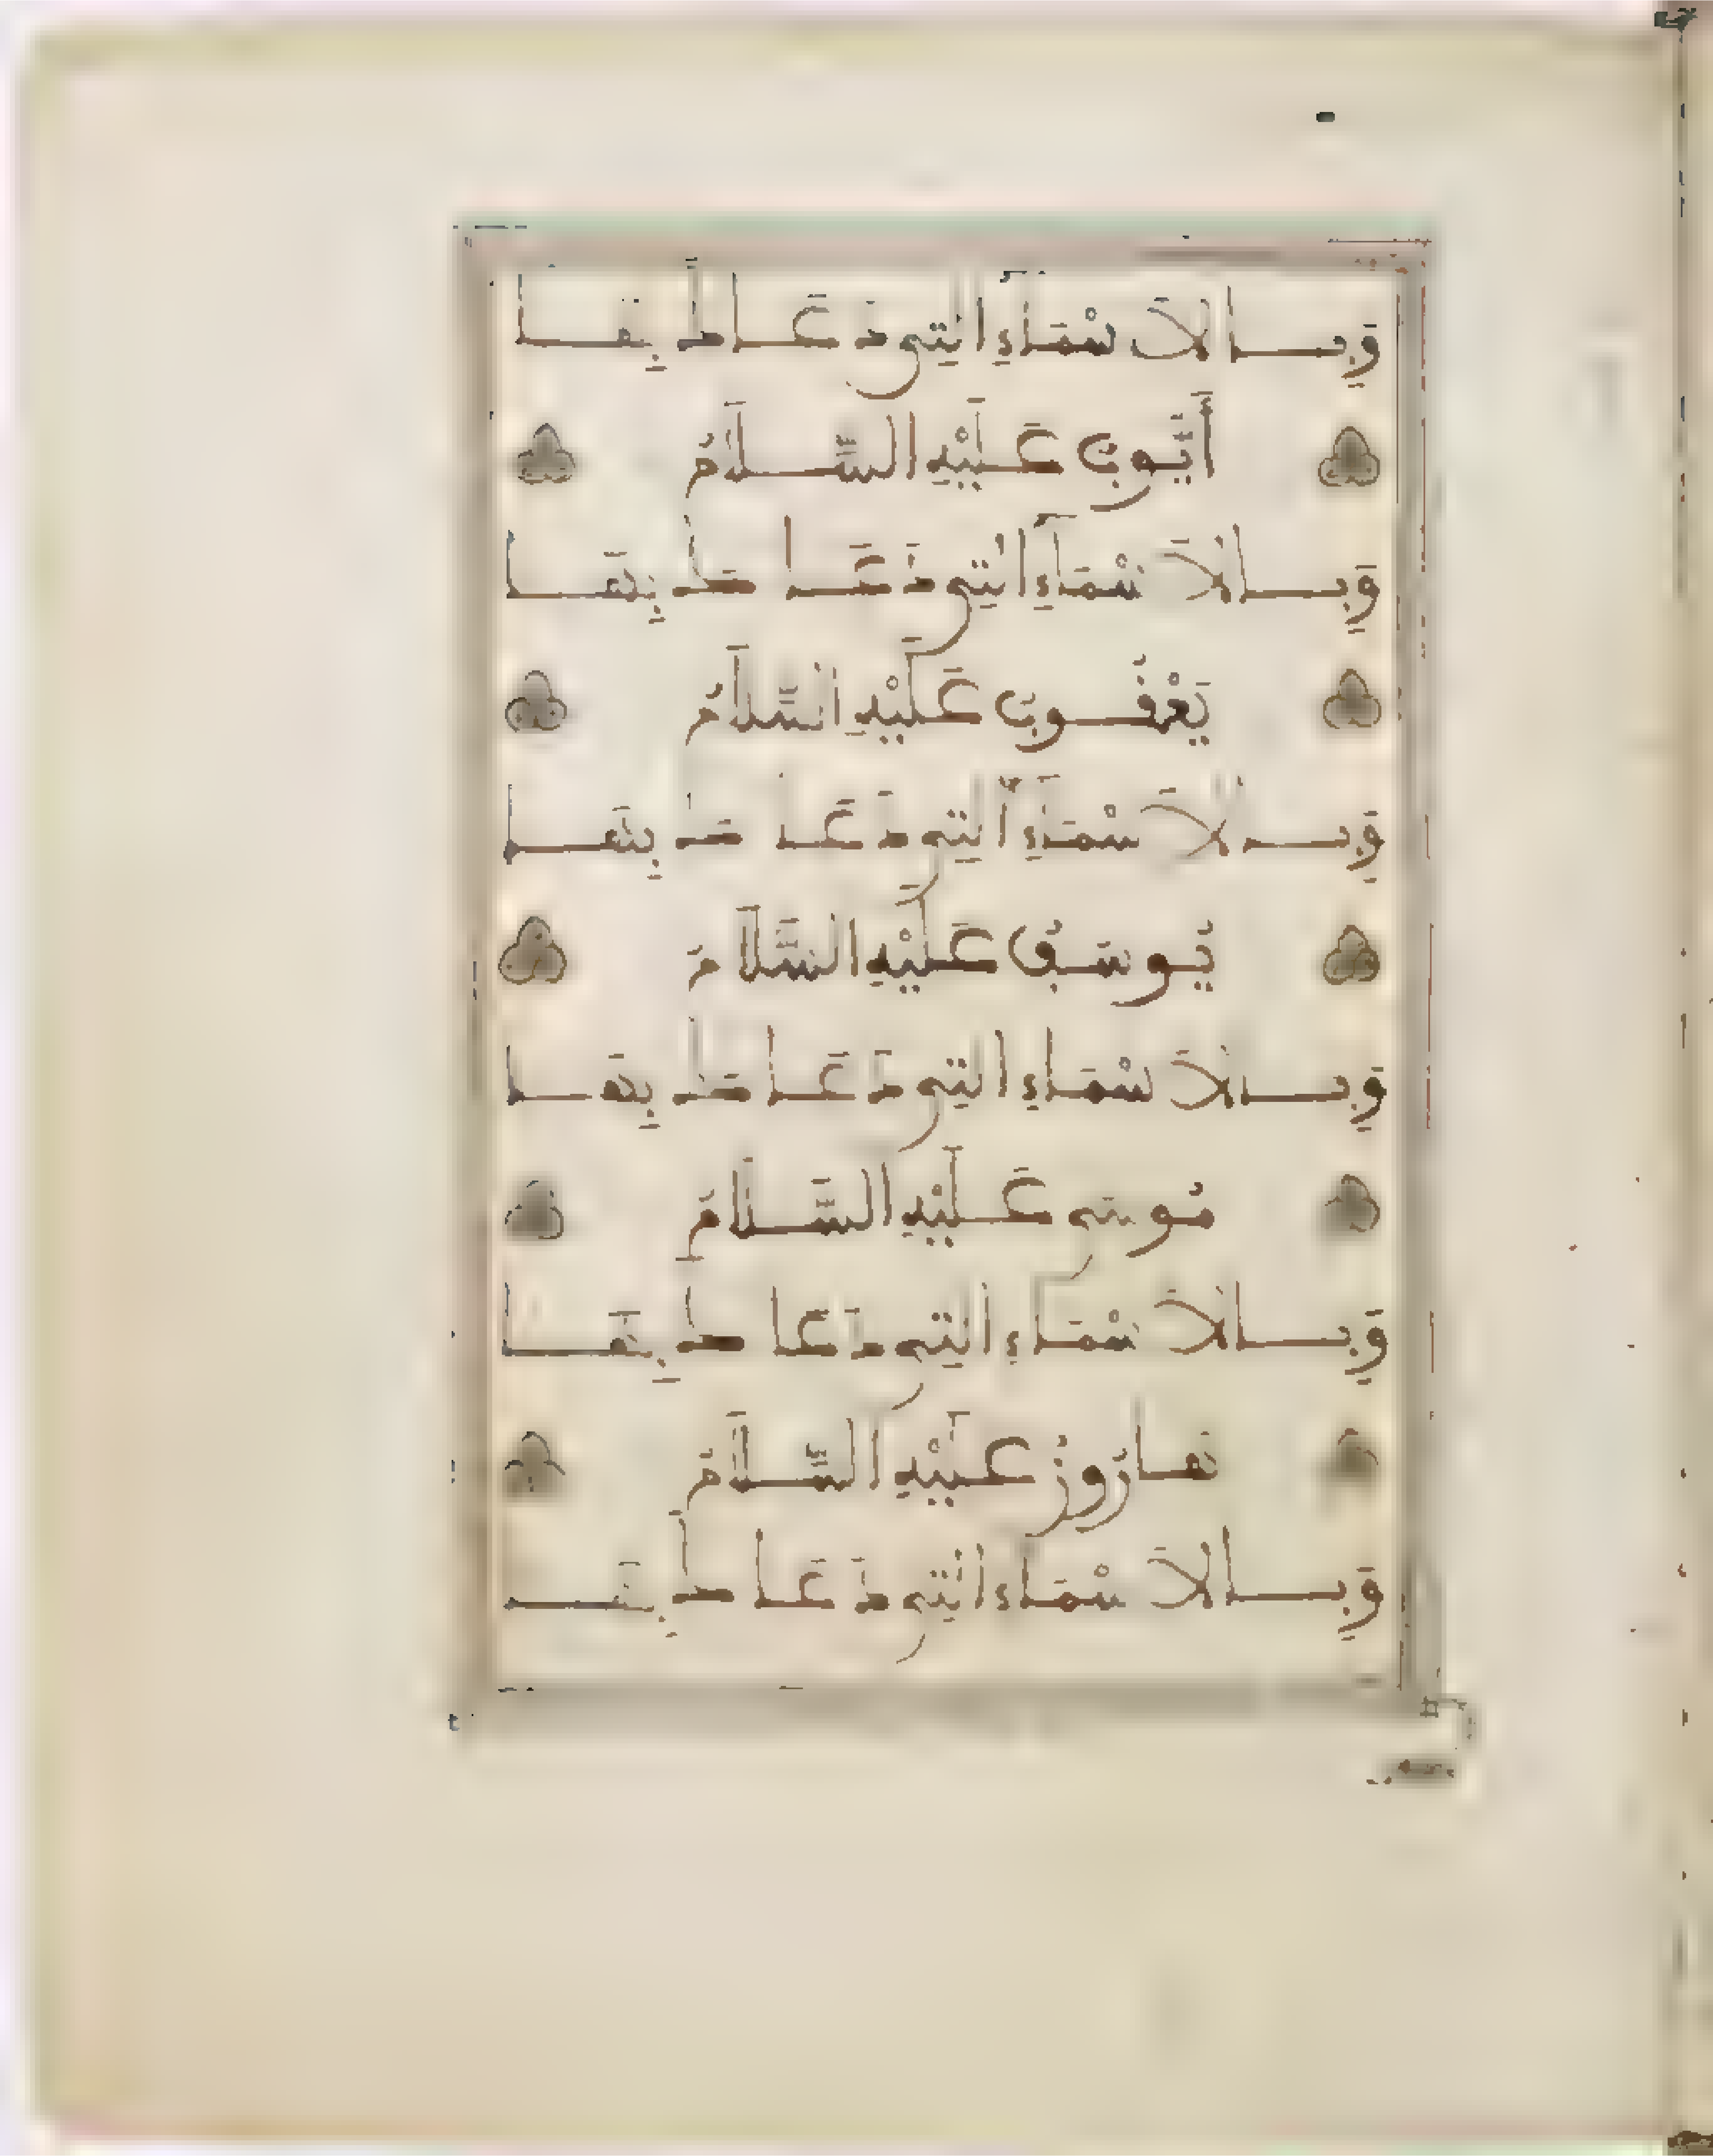 وَبِالاَسْمَآءِ التِي دَعَاكَ بِهَا
أَيُّوبُ عَلَيْهِ السَّلَامُ
وَبِالاَسْمَآءِ التِي دَعَاكَ بِهَا
يَعْقُوبُ عَلَيْهِ السَّلَامُ
وَبِالاَسْمَآءِ التِي دَعَاكَ بِهَا
يُوسُفُ عَلَيْهِ السَّلَامُ
وَبِالاَسْمَآءِ التِي دَعَاكَ بِهَا
مُوسَى عَلَيْهِ السَّلَامُ
وَبِالاَسْمَآءِ التِي دَعَاكَ بِهَا
هَارُونُ عَلَيْهِ السَّلَامُ
وَبِالاَسْمَآءِ التِي دَعَاكَ بِهَا